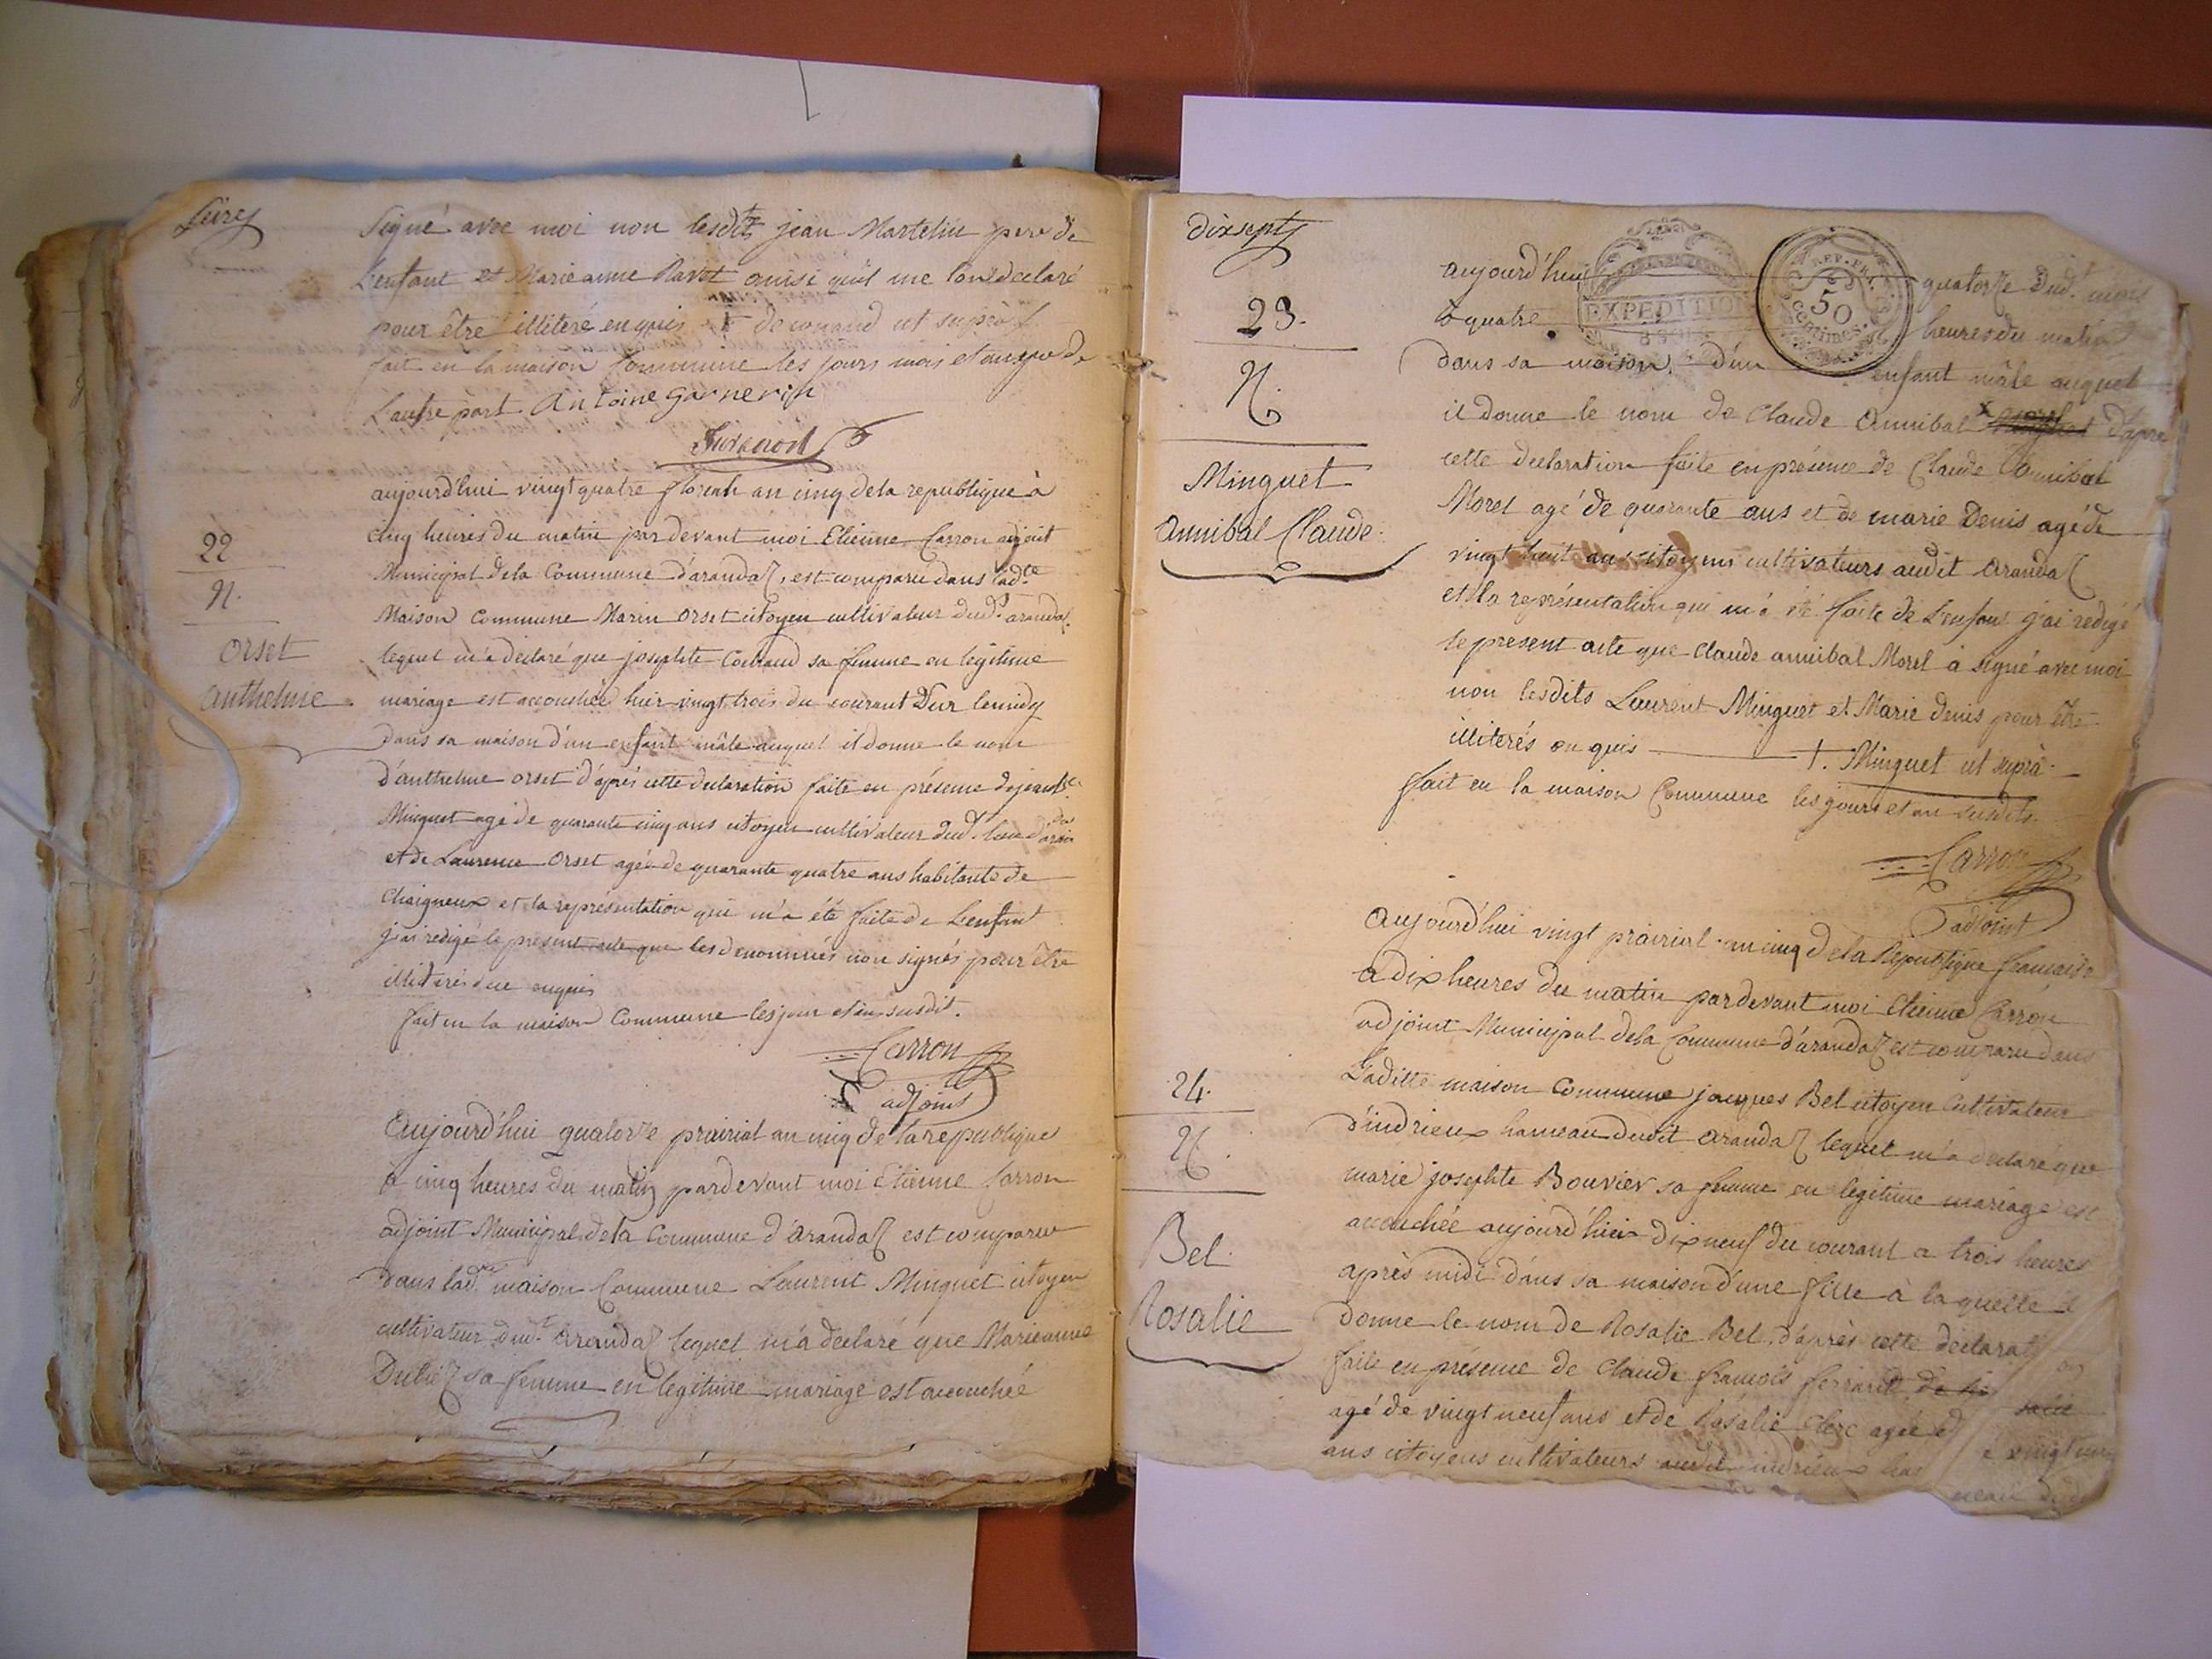 Seize
Signé avec moi non lesdts jean Martelin pere de
L'enfant et Marieanne Ravet ainsi quil me l'ont declaré
pour être illiteré enquis de ut suprà
fait en la maison Commune les jours mois et an que de
L'autre part. Antoine Garnerin
22
N.
Orset
Anthelme
aujourd'hui vingt quatre floreal an cinq de la republique à
cinq heures du matin pardevant moi Etienne Carron adjoint
Municipal de la Commune d'aranda, est comparu dans ladte
Maison Commune Marin Orset citoyen cultivateur dudt aranda
lequel m'a déclaré que josephte sa femme en legitime
mariage est accouchée hier vingt trois du courant
dans sa maison d'un enfant mâle auquel il donne le nom
d'anthelme orset d'après cette declaration faite en présence de
Minguet agé de quarante cinq ans citoyen cultivateur dudt lieu
et de Laurence Orset agée de quarante quatre ans habitante de
Chaigneux et la représentation qui m'a été faite de L'enfant
j'ai redigé le present acte que les denommés non signés pour être
illiterés enquis
fait en la maison Commune les jour et an susdit.
Carron
adjoint
Aujourd'hui quatorze prairial an cinq de la republique
à cinq heures du matin pardevant moi Etienne Carron
adjoint Municipal de la Commune d'aranda est comparu
dans ladte maison Commune Laurent Minguet citoyen
cultivateur dudt aranda lequel m'a declaré que Marieanne
sa femme en legitime mariage est accouchée
dixsept
23.
N.
Minguet
Annibal Claude
EXPEDITION
REP. FRA.
50
centimes.
aujourd'hui quatorze dudt mois
à quatre heures du matin
dans sa maison d'un enfant mâle auquel
il donne le nom de Claude Annibal d'apre
cette declaration faite en présence de Claude Annibal
Morel agé de quarante ans et de marie Denis agé de
vingt huit ans citoyens cultivateurs audit aranda
et la représentation qui m'a été faite de L'enfant j'ai redigé
le present acte que Claude annibal Morel à signé avec moi
non lesdits Laurent Minguet et Marie denis pour être
illiterés enquis +. Minguet ut suprà.
fait en la maison Commune les jours et an susdits.
Carron
adjoint
24.
N.
Bel
Rosalie
Aujourd'hui vingt prairial an cinq de la Republique francaise
a dix heures du matin pardevant moi Etienne Carron
adjoint Municipal de la Commune d'aranda est comparu dans
Ladite maison Commune jacques Bel citoyen Cultivateur
d'indrieux hameau dudit aranda lequel m'a declaré que
marie josephte Bouvier sa femme en legitime mariage est
accouchée aujourd'hier dixneuf du courant a trois heures
après midi dans sa maison d'une fille à laquelle il
donne le nom de Rosalie Bel, d'après cette declarat on
faite en présence de Claude francois ferrand
agé de vingt neuf ans et de Rosalie Clerc agée d e vingt un
ans citoyens cultivateurs audit indrieux ha meau